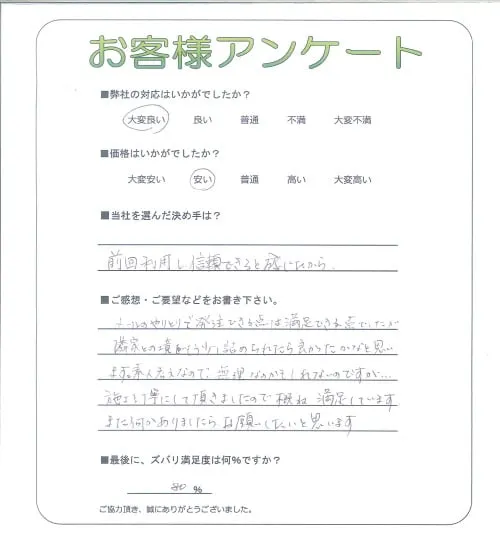 お客様アンケート
■弊社の対応はいかがでしたか？
大変良い 良い 普通 不満 大変不満
■価格はいかがでしたか？
大変安い 安い 普通 高い 大変高い
■当社を選んだ決め手は？
前回利用し信頼できると感じたから。
■ご感想・ご要望などをお書き下さい。
メールのやりとりで発注できる点は満足できる点でしたが
隣家との境がもう少し詰められたら良かったかなと思い
ます。素人考えなので無理なのかもしれないのですが…
施工も丁寧にして頂きましたので概ね満足しています
また何かありましたらお願いしたいと思います
■最後に、ズバリ満足度は何%ですか？
80 %
ご協力頂き、誠にありがとうございました。